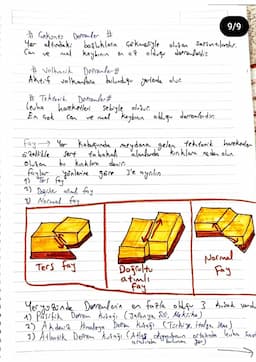 9/9
# Çöküntü Depremler #
Yer altındaki boşlukların çökmesiyle oluşan sarsıntılardır.
Can ve mal kaybının en az olduğu depremlerdir
# Volkanik Depremler #
Aktif volkanların bulunduğu yerlerde olur
# Tektonik Depremler #
Levha hareketleri sebiyle oluşur.
En çok can ve mal kaybının olduğu depremlerdir
Fay → Yer kabuğunda meydana gelen tektonik hareketler
özellikle sert tabakalı alanlarda kırıklara neden olur
Oluşan bu kırıklara denir
Faylar yönlerine göre 3'e ayrılır
1) Ters fay
2) Doğrultu atımlı fay
3) Normal fay
Ters fay
Doğrultu
atımlı
fay
Normal
fay
Yeryüzünde Depremlerin en fazla olduğu 3 kuşak vardır
1) Pasifik Deprem Kuşağı (Japonya, Şili, Meksika)
2) Akdeniz Himalaya Deprem Kuşağı (Türkiye, İtalya, İran)
3) Atlantik Deprem Kuşağı (Atlas okyanusunun ortasında levha